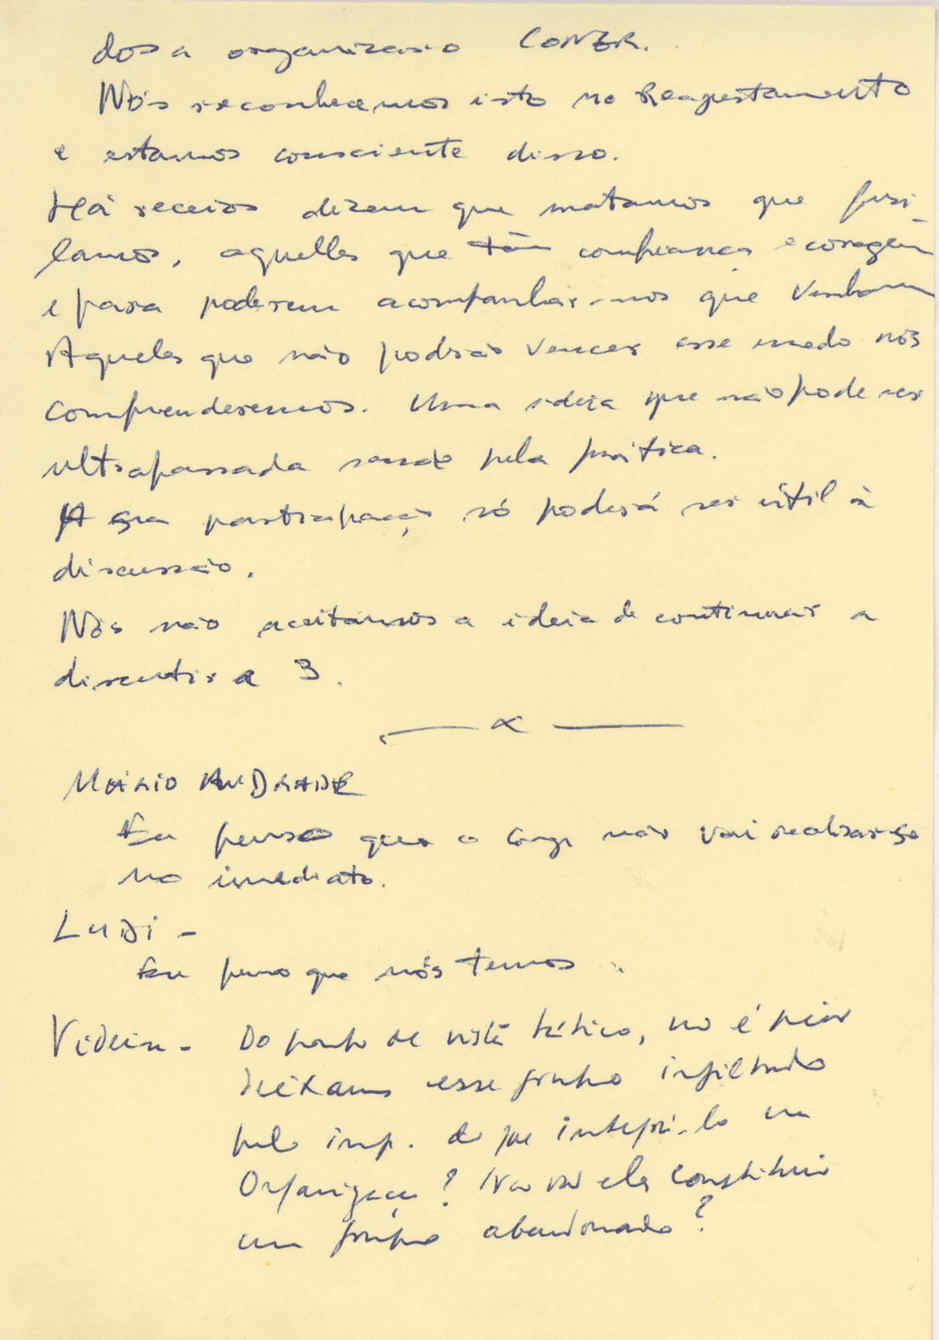 dos a organizasio
Nós reconhecemos isto no Reagustamento
e estamos consciente disso.
Há receios dizem que matamos que fusi-
lamos, aquelles que têm confiança e coragem
e para poderem acompanhar-nos que venham
Aqueles que não podrão vencer esse medo nós
comprenderemos. Uma ideia que não pode ser
ultrapassada senão pela prática.
A sua só poderá ser útil à
discussão.
Nós não aceitamos a ideia de continuar a
discutir a 3.
Mário Andrade
Eu penso que o não vai realizar-se
no imediato.
Ludi -
Eu penso que nós temos ..
Videira - Do ponto de vista tático, não é pior
deixarmos esse grupo infiltrado
pelo imp. do que integrá-lo na
Organização? Não vai ele constituir
um grupo abandonado?